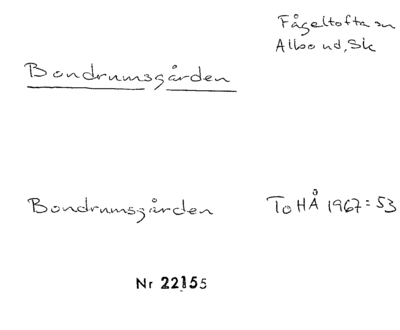 Fågeltofta sn
Albo hd, Sk
Bondrumsgården
Bondrumsgården ToHÅ 1967:53
Nr 22155